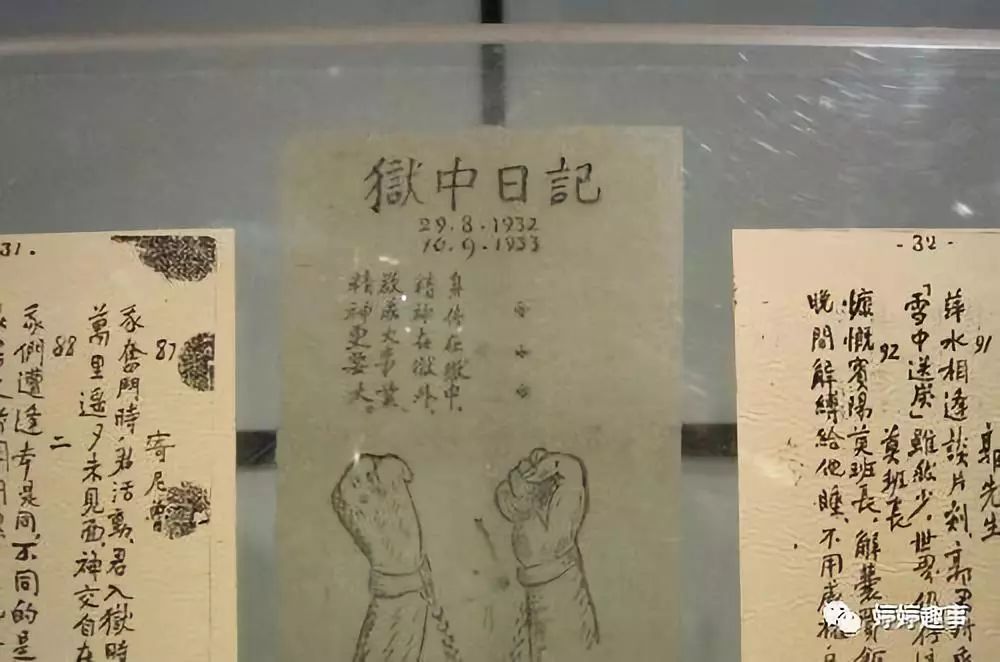 31.
87
寄尼魯
我奮鬥時君活動，君入獄時
萬里遥々未見面，神交自在
88
二
我們遭逢本是同，不同的是
獄中日記
29.8.1932
10.9.1933
身体在獄中，
精神在獄外，
欲成大事業，
精神更要大。
-32-
91
郭先生
萍水相逢談片刻，郭君對我
「雪中送炭」雖然少，世界仍有
92
莫班長
慷慨賓陽莫班長，解囊買飯
晚間解縛給他睡，不用威權
婷婷趣事